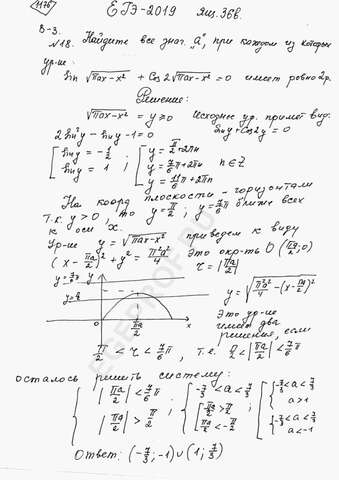 1176
ЕГЭ-2019 Ящ. 36в.
В-3.
№18. Найдите все знач. "a", при каждом из которых
ур-ие:
sin √(πax-x²) + cos 2√(πax-x²) = 0 имеет ровно 2р.
Решение:
√(πax-x²) = y ≥ 0 Исходное ур. примет вид:
2sin²y - sin y - 1 = 0 sin y + cos 2y = 0
[ sin y = -1/2 ; sin y = 1 ; [ y = π/2 + 2πn
y = 7/6 π + 2πn n ∈ Z
y = 11/6 π + 2πn
На коорд. плоскости - горизонтали
т.к. y > 0, то y = π/2 ; y = 7/6 π ближе всех
к оси x.
Ур-ие y = √(πax-x²) приведем к виду
(x - πa/2)² + y² = π²a²/4 Это окр-ть O (πa/2; 0)
r = |πa/2|
y = √(π²a²/4 - (x - πa/2)²)
Это ур-ие
имеет два
решения, если
π/2 < r < 7/6 π , т.е. π/2 < |πa/2| < 7/6 π
осталось решить систему:
{ |πa/2| < 7/6 π ; |πa/2| > π/2 ; { -7/3 < a < 7/3 ; [ πa/2 > π/2 ; πa/2 < -π/2 ; [ { -7/3 < a < 7/3 ; a > 1
{ -7/3 < a < 7/3 ; a < -1
Ответ: (-7/3; -1) ∪ (1; 7/3)